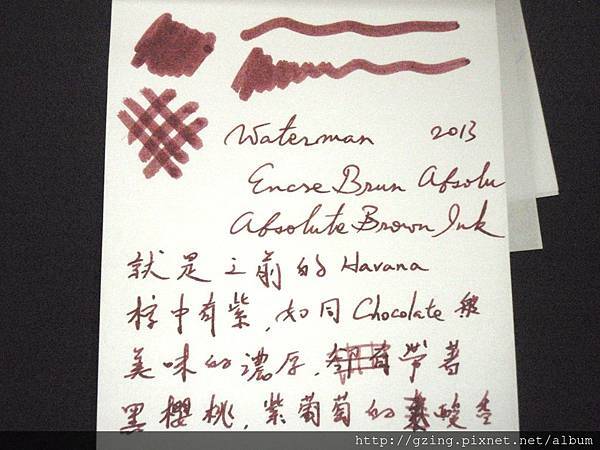 Waterman 2013
Encre Brun Absolu
Absolute Brown Ink
就是之前的 Havana
棕中有紫,如同 Chocolate 般
美味的濃厚,帶著
黑櫻桃,紫葡萄的酸香
http://gzing.pixnet.net/album